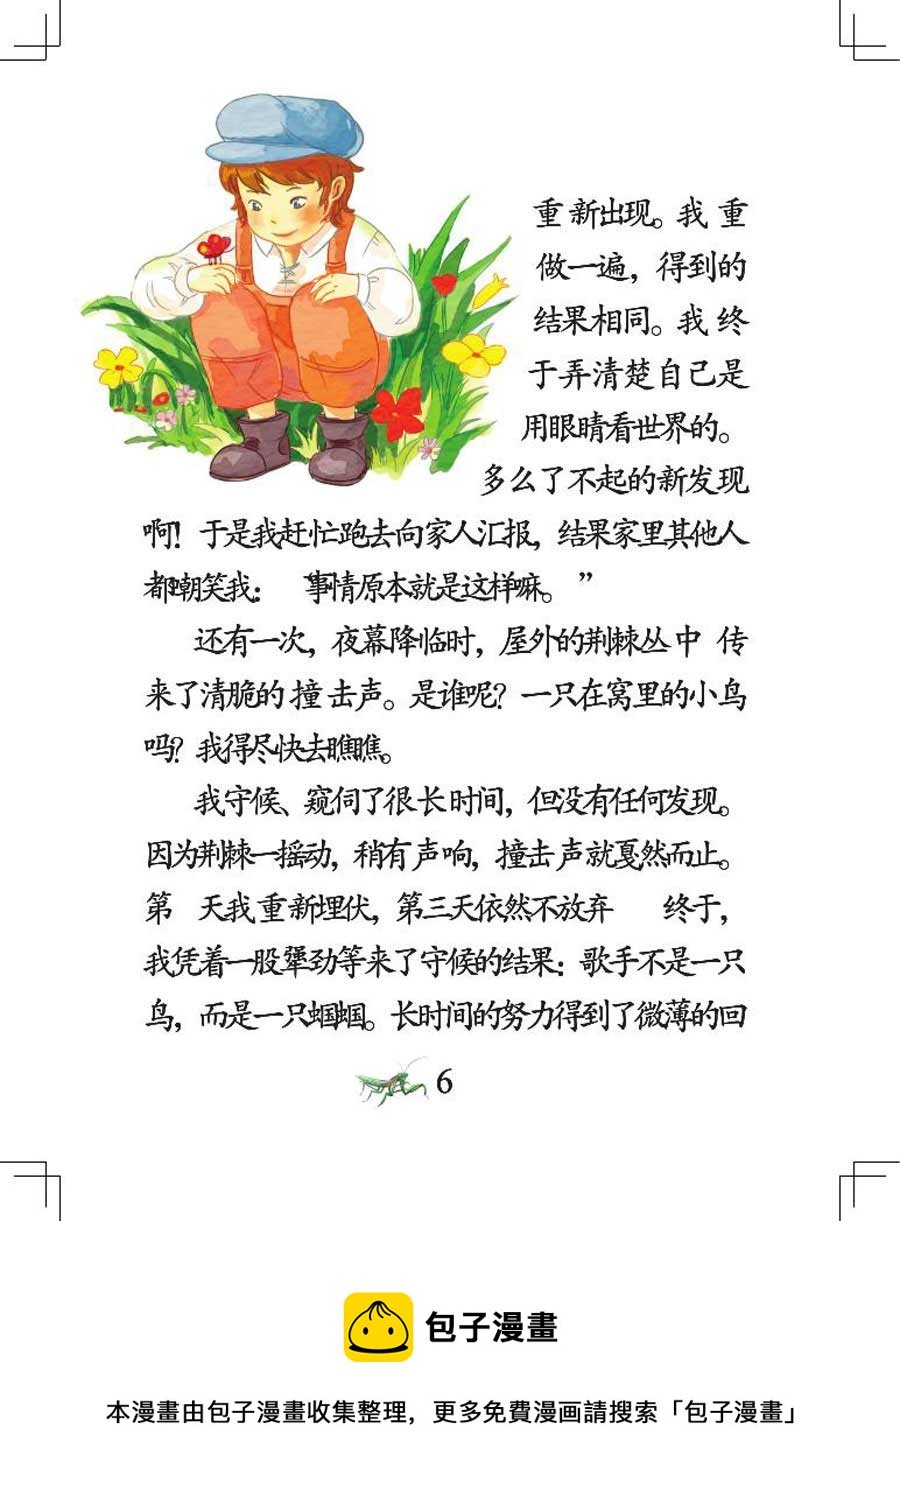 重新出现。我重
做一遍，得到的
结果相同。我终
于弄清楚自己是
用眼睛看世界的。
多么了不起的新发现
啊！于是我赶忙跑去向家人汇报，结果家里其他人
都嘲笑我： 事情原本就是这样嘛。”
还有一次，夜幕降临时，屋外的荆棘丛中传
来了清脆的撞击声。是谁呢？一只在窝里的小鸟
吗？我得尽快去瞧瞧。
我守候、窥伺了很长时间，但没有任何发现。
因为荆棘一摇动，稍有声响，撞击声就戛然而止。
第 天我重新埋伏，第三天依然不放弃 终于，
我凭着一股犟劲等来了守候的结果：歌手不是一只
鸟，而是一只蝈蝈。长时间的努力得到了微薄的回
6
包子漫畫
本漫畫由包子漫畫收集整理，更多免費漫画請搜索「包子漫畫」